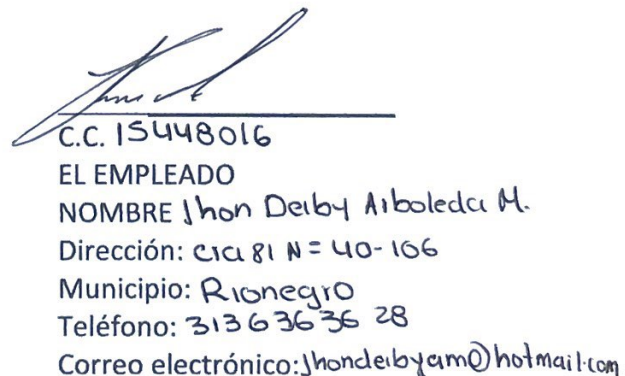 C.C. 15448016
EL EMPLEADO
NOMBRE Jhon Deiby Arboleda M.
Dirección: Cra 81 N= 40-106
Municipio: Rionegro
Teléfono: 313 6 3 6 36 28
Correo electrónico: Jhondeibyam@hotmail.com